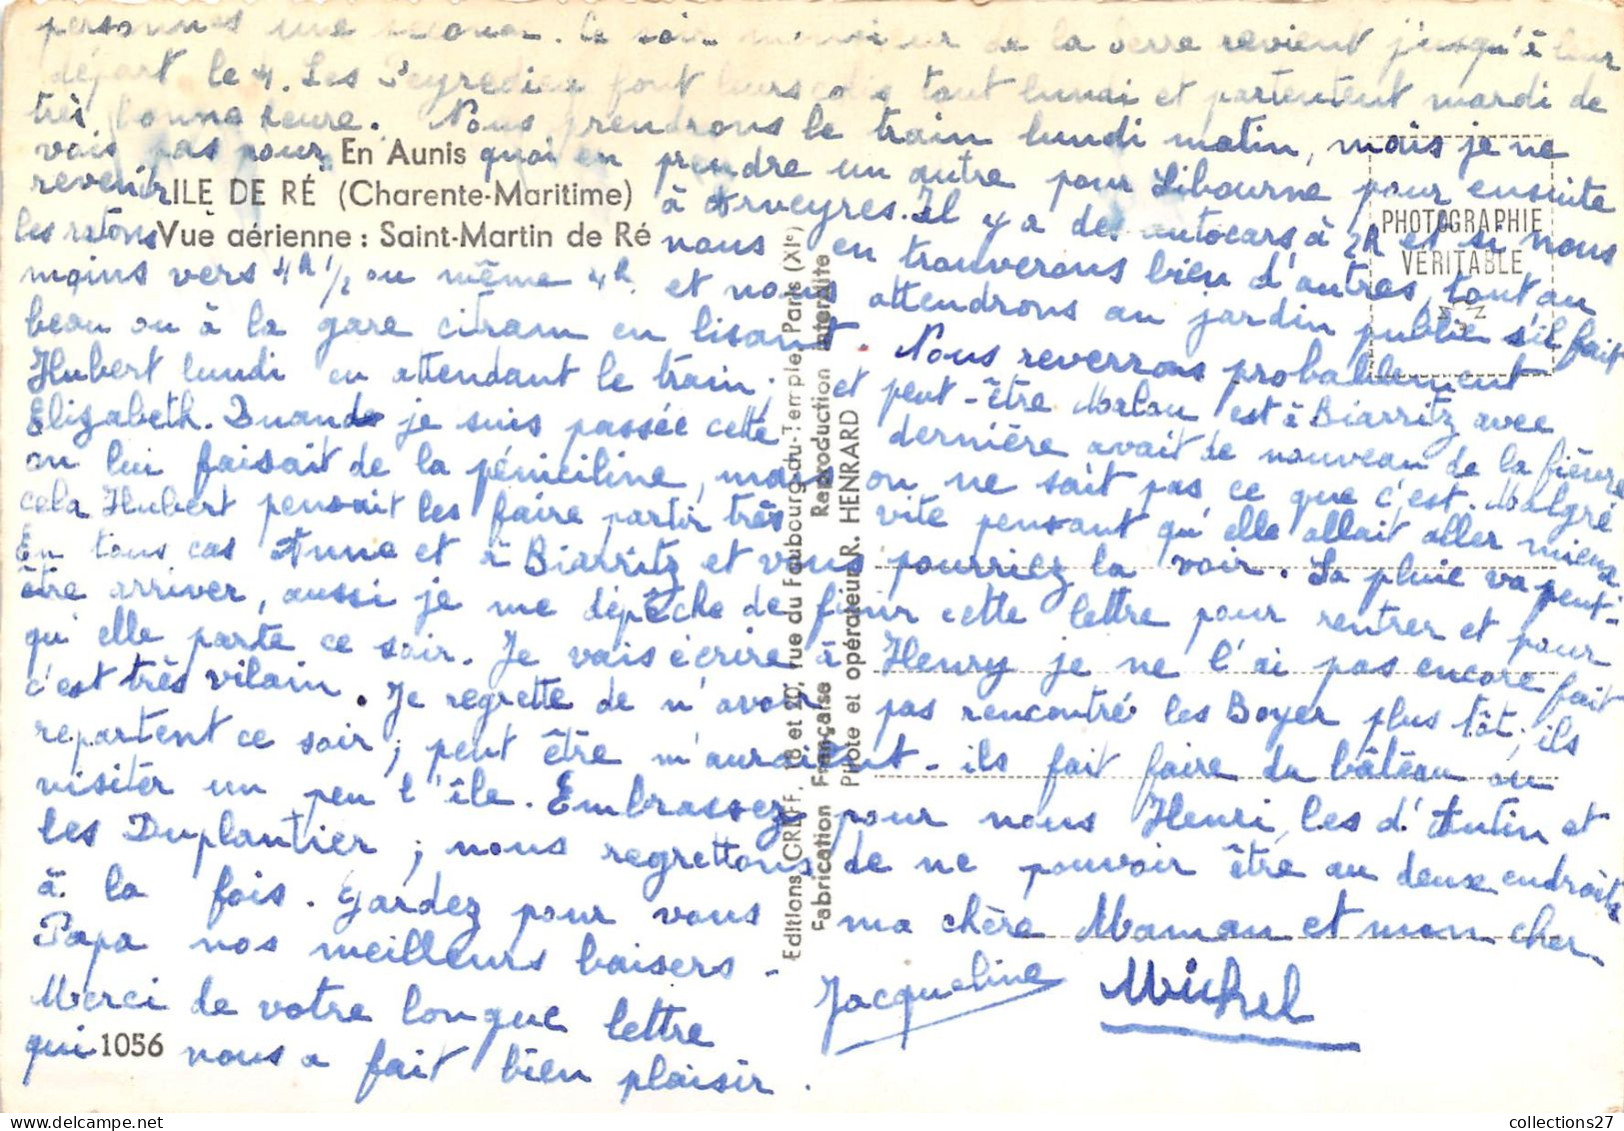 personnes une . Le soir monsieur de la Serre revient jusqu'à leur
départ le 4. Les Peyredieu font leurs colis tout lundi et partentent mardi de
très bonne heure. Nous prendrons le train lundi matin, mais je ne
vois pas pour quoi en prendre un autre pour Libourne pour ensuite
revenir à Arveyres. Il y a des autocars à 2h et si nous
les ratons nous en trouverons bien d'autres, tout au
moins vers 4h 1/2 ou même 4h. et nous attendrons au jardin public s'il fait
beau ou à la gare citram en lisant. Nous reverrons probablement
Hubert lundi en attendant le train; et peut-être Malou est à Biarritz avec
Elizabeth. Quand je suis passée cette dernière avait de nouveau de la fièvre
on lui faisait de la péniciline, mais on ne sait pas ce que c'est. Malgré
cela Hubert pensait les faire partir très vite pensant qu'elle allait aller mieux
En tous cas Anne et à Biarritz et vous pourriez la voir. La pluie va peut-
être arriver, aussi je me dépêche de finir cette lettre pour rentrer et pour
qu'elle parte ce soir. Je vais écrire à Henry je ne l'ai pas encore fait
c'est très vilain. Je regrette de n'avoir pas rencontré les Boyer plus tôt; ils
repartent ce soir; peut être m'auraient-ils fait faire du bâteau ou
visiter un peu l'île. Embrassez pour nous Henri, les d'Antin et
les Duplantier; nous regrettons de ne pouvoir être au deux endroits
à la fois. Gardez pour vous ma chère Maman et mon cher
Papa nos meilleurs baisers -
Jacqueline Michel
Merci de votre longue lettre
qui nous a fait bien plaisir.
En Aunis
ILE DE RÉ (Charente-Maritime)
Vue aérienne : Saint-Martin de Ré
1056
Editions GREFF, 18 et 20, rue du Faubourg-du-Temple Paris (XIe)
Fabrication Française Reproduction interdite
Pilote et opérateur R. HENRARD
PHOTOGRAPHIE
VERITABLE
collections27